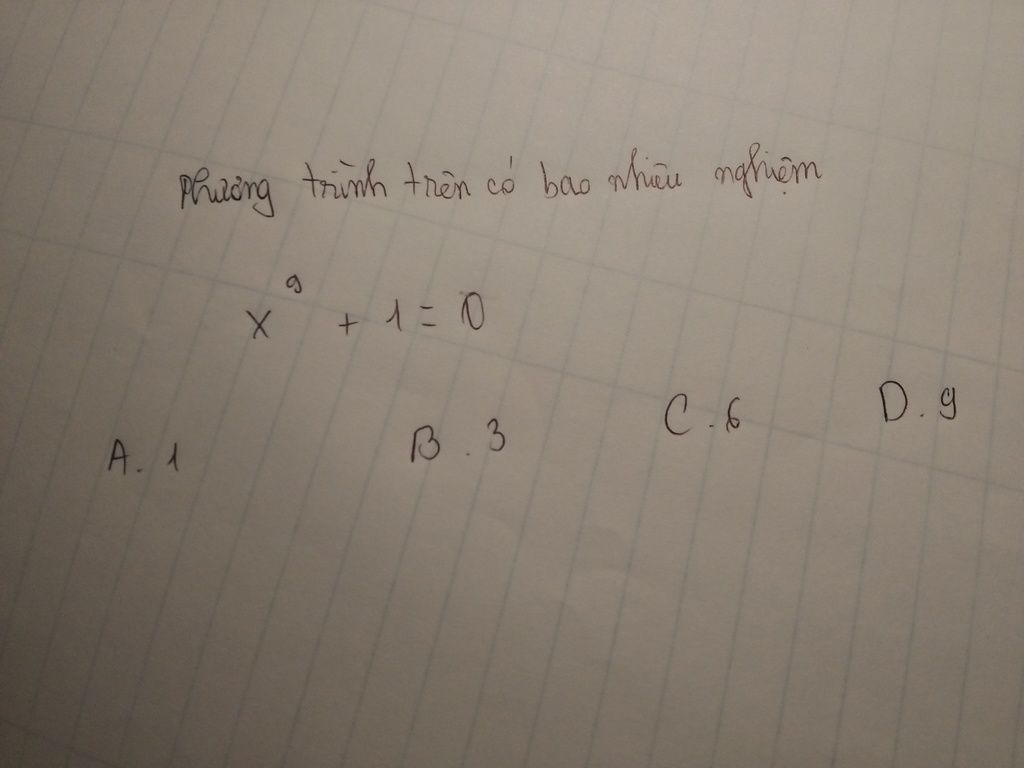 Phương trình trên có bao nhiêu nghiệm
x⁹ + 1 = 0
A. 1 B. 3 C. 6 D. 9